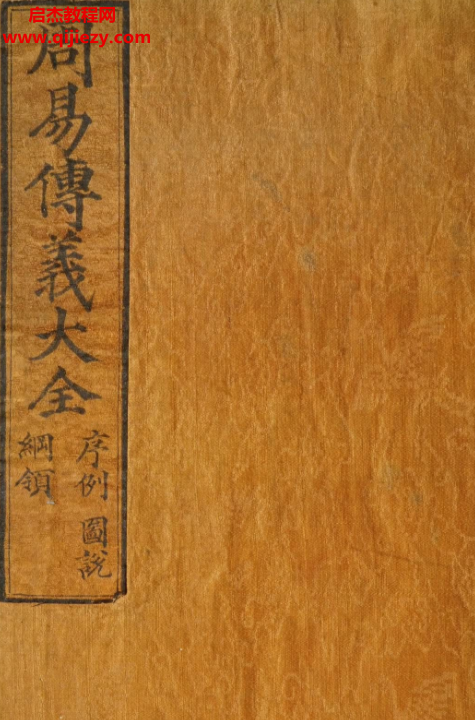 启杰教程网
www.qijiezy.com
周易傳義大全
序例 圖說
綱領